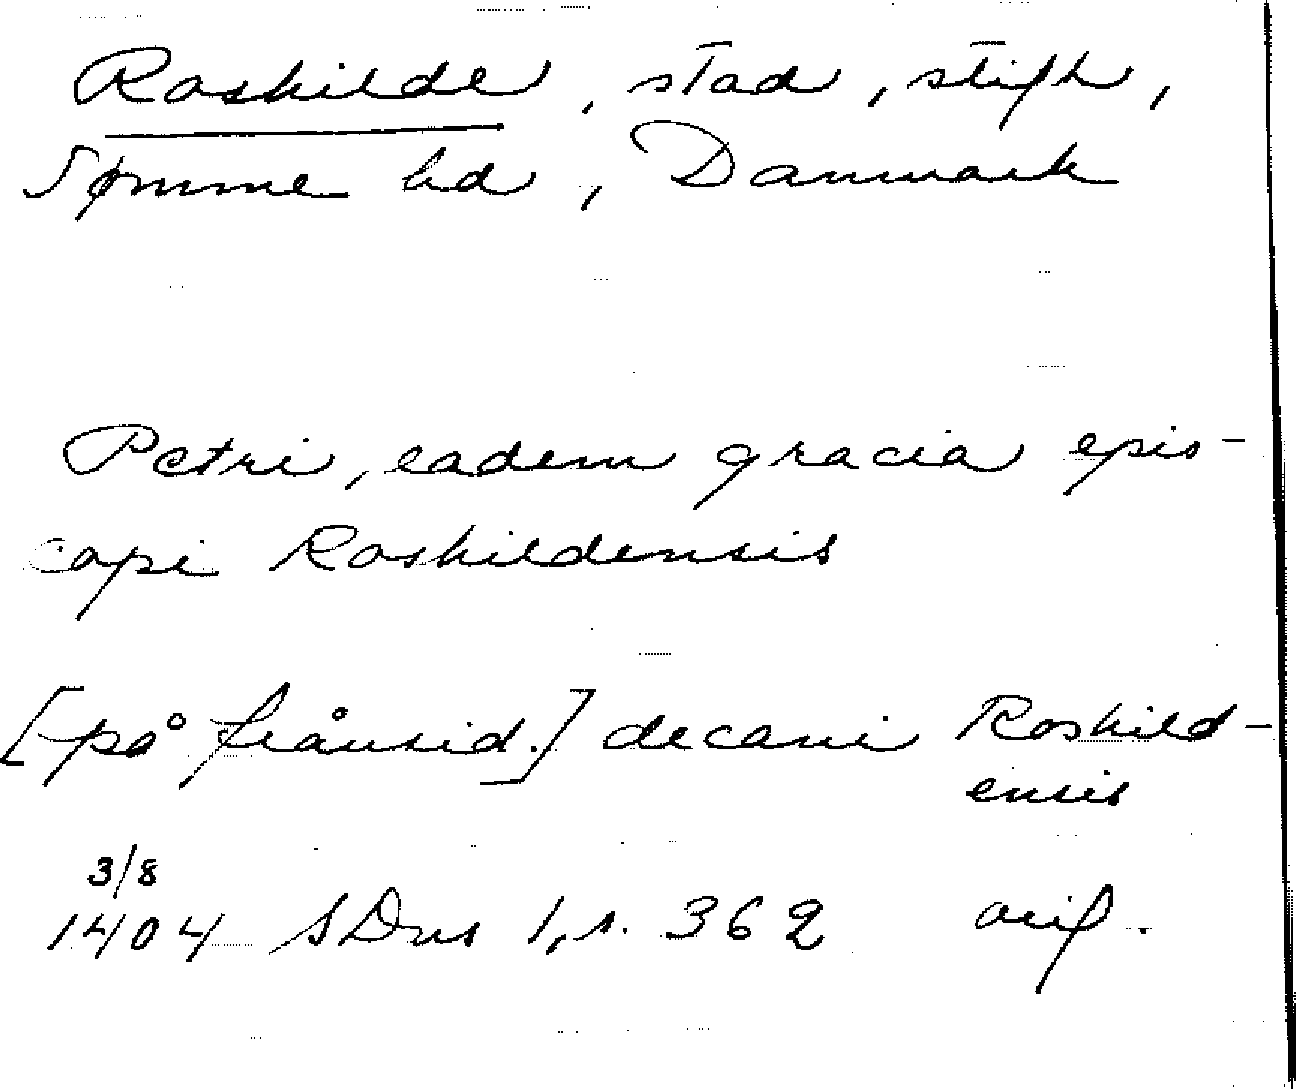 Roskilde, stad, stift,
Sømme hd, Danmark
Petri, eadem gracia epis-
copi Roskildensis
[på frånsid.] decani Roskild-
ensis
3/8
1404 SDns 1, s. 362 orig.